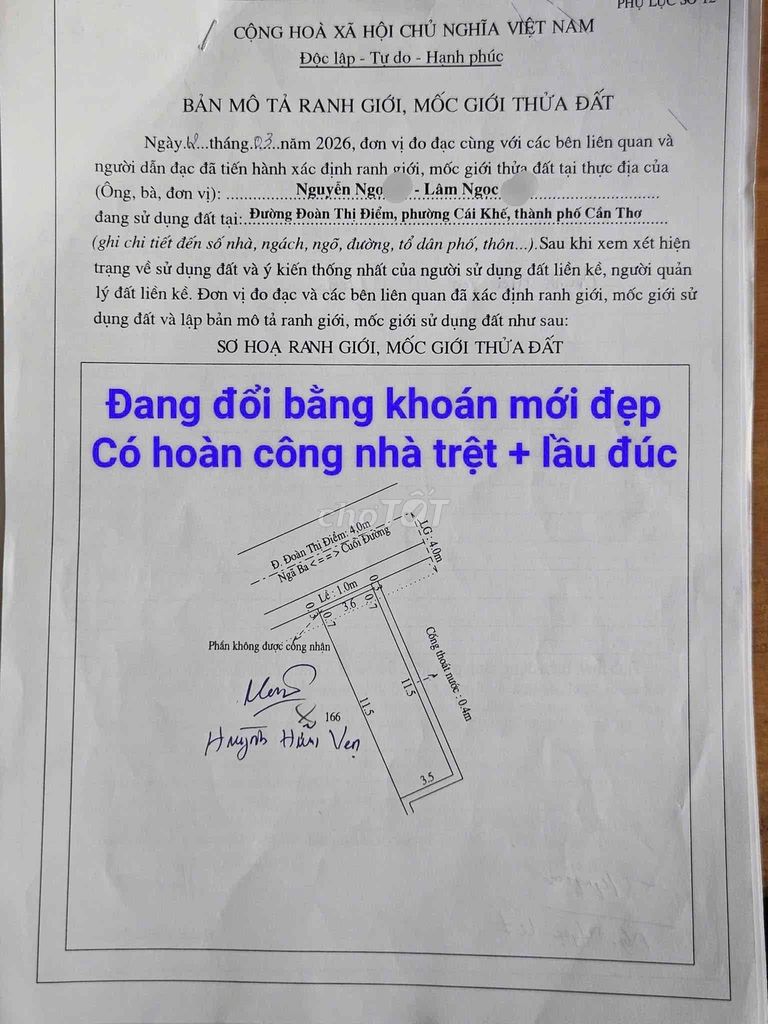 PHỤ LỤC SỐ 12
CỘNG HOÀ XÃ HỘI CHỦ NGHĨA VIỆT NAM
Độc lập - Tự do - Hạnh phúc
BẢN MÔ TẢ RANH GIỚI, MỐC GIỚI THỬA ĐẤT
Ngày...tháng.03.năm 2026, đơn vị đo đạc cùng với các bên liên quan và
người dẫn đạc đã tiến hành xác định ranh giới, mốc giới thửa đất tại thực địa của
(Ông, bà, đơn vị): Nguyễn Ngọ - Lâm Ngọc
đang sử dụng đất tại: Đường Đoàn Thị Điểm, phường Cái Khế, thành phố Cần Thơ
(ghi chi tiết đến số nhà, ngách, ngõ, đường, tổ dân phố, thôn...).Sau khi xem xét hiện
trạng về sử dụng đất và ý kiến thống nhất của người sử dụng đất liền kề, người quản
lý đất liền kề. Đơn vị đo đạc và các bên liên quan đã xác định ranh giới, mốc giới sử
dụng đất và lập bản mô tả ranh giới, mốc giới sử dụng đất như sau:
SƠ HOẠ RANH GIỚI, MỐC GIỚI THỬA ĐẤT
Đang đổi bằng khoán mới đẹp
Có hoàn công nhà trệt + lầu đúc
chợTỐT
Đ. Đoàn Thị Điểm: 4.0m
Ngã Ba <==> Cuối Đường
LG: 4.0m
Lề: 1.0m
0.3
0.3
3.6
0.7
0.7
Phần không được công nhận
Cống thoát nước: 0.4m
11.5
11.5
166
Huỳnh Hữu Vẹn
3.5